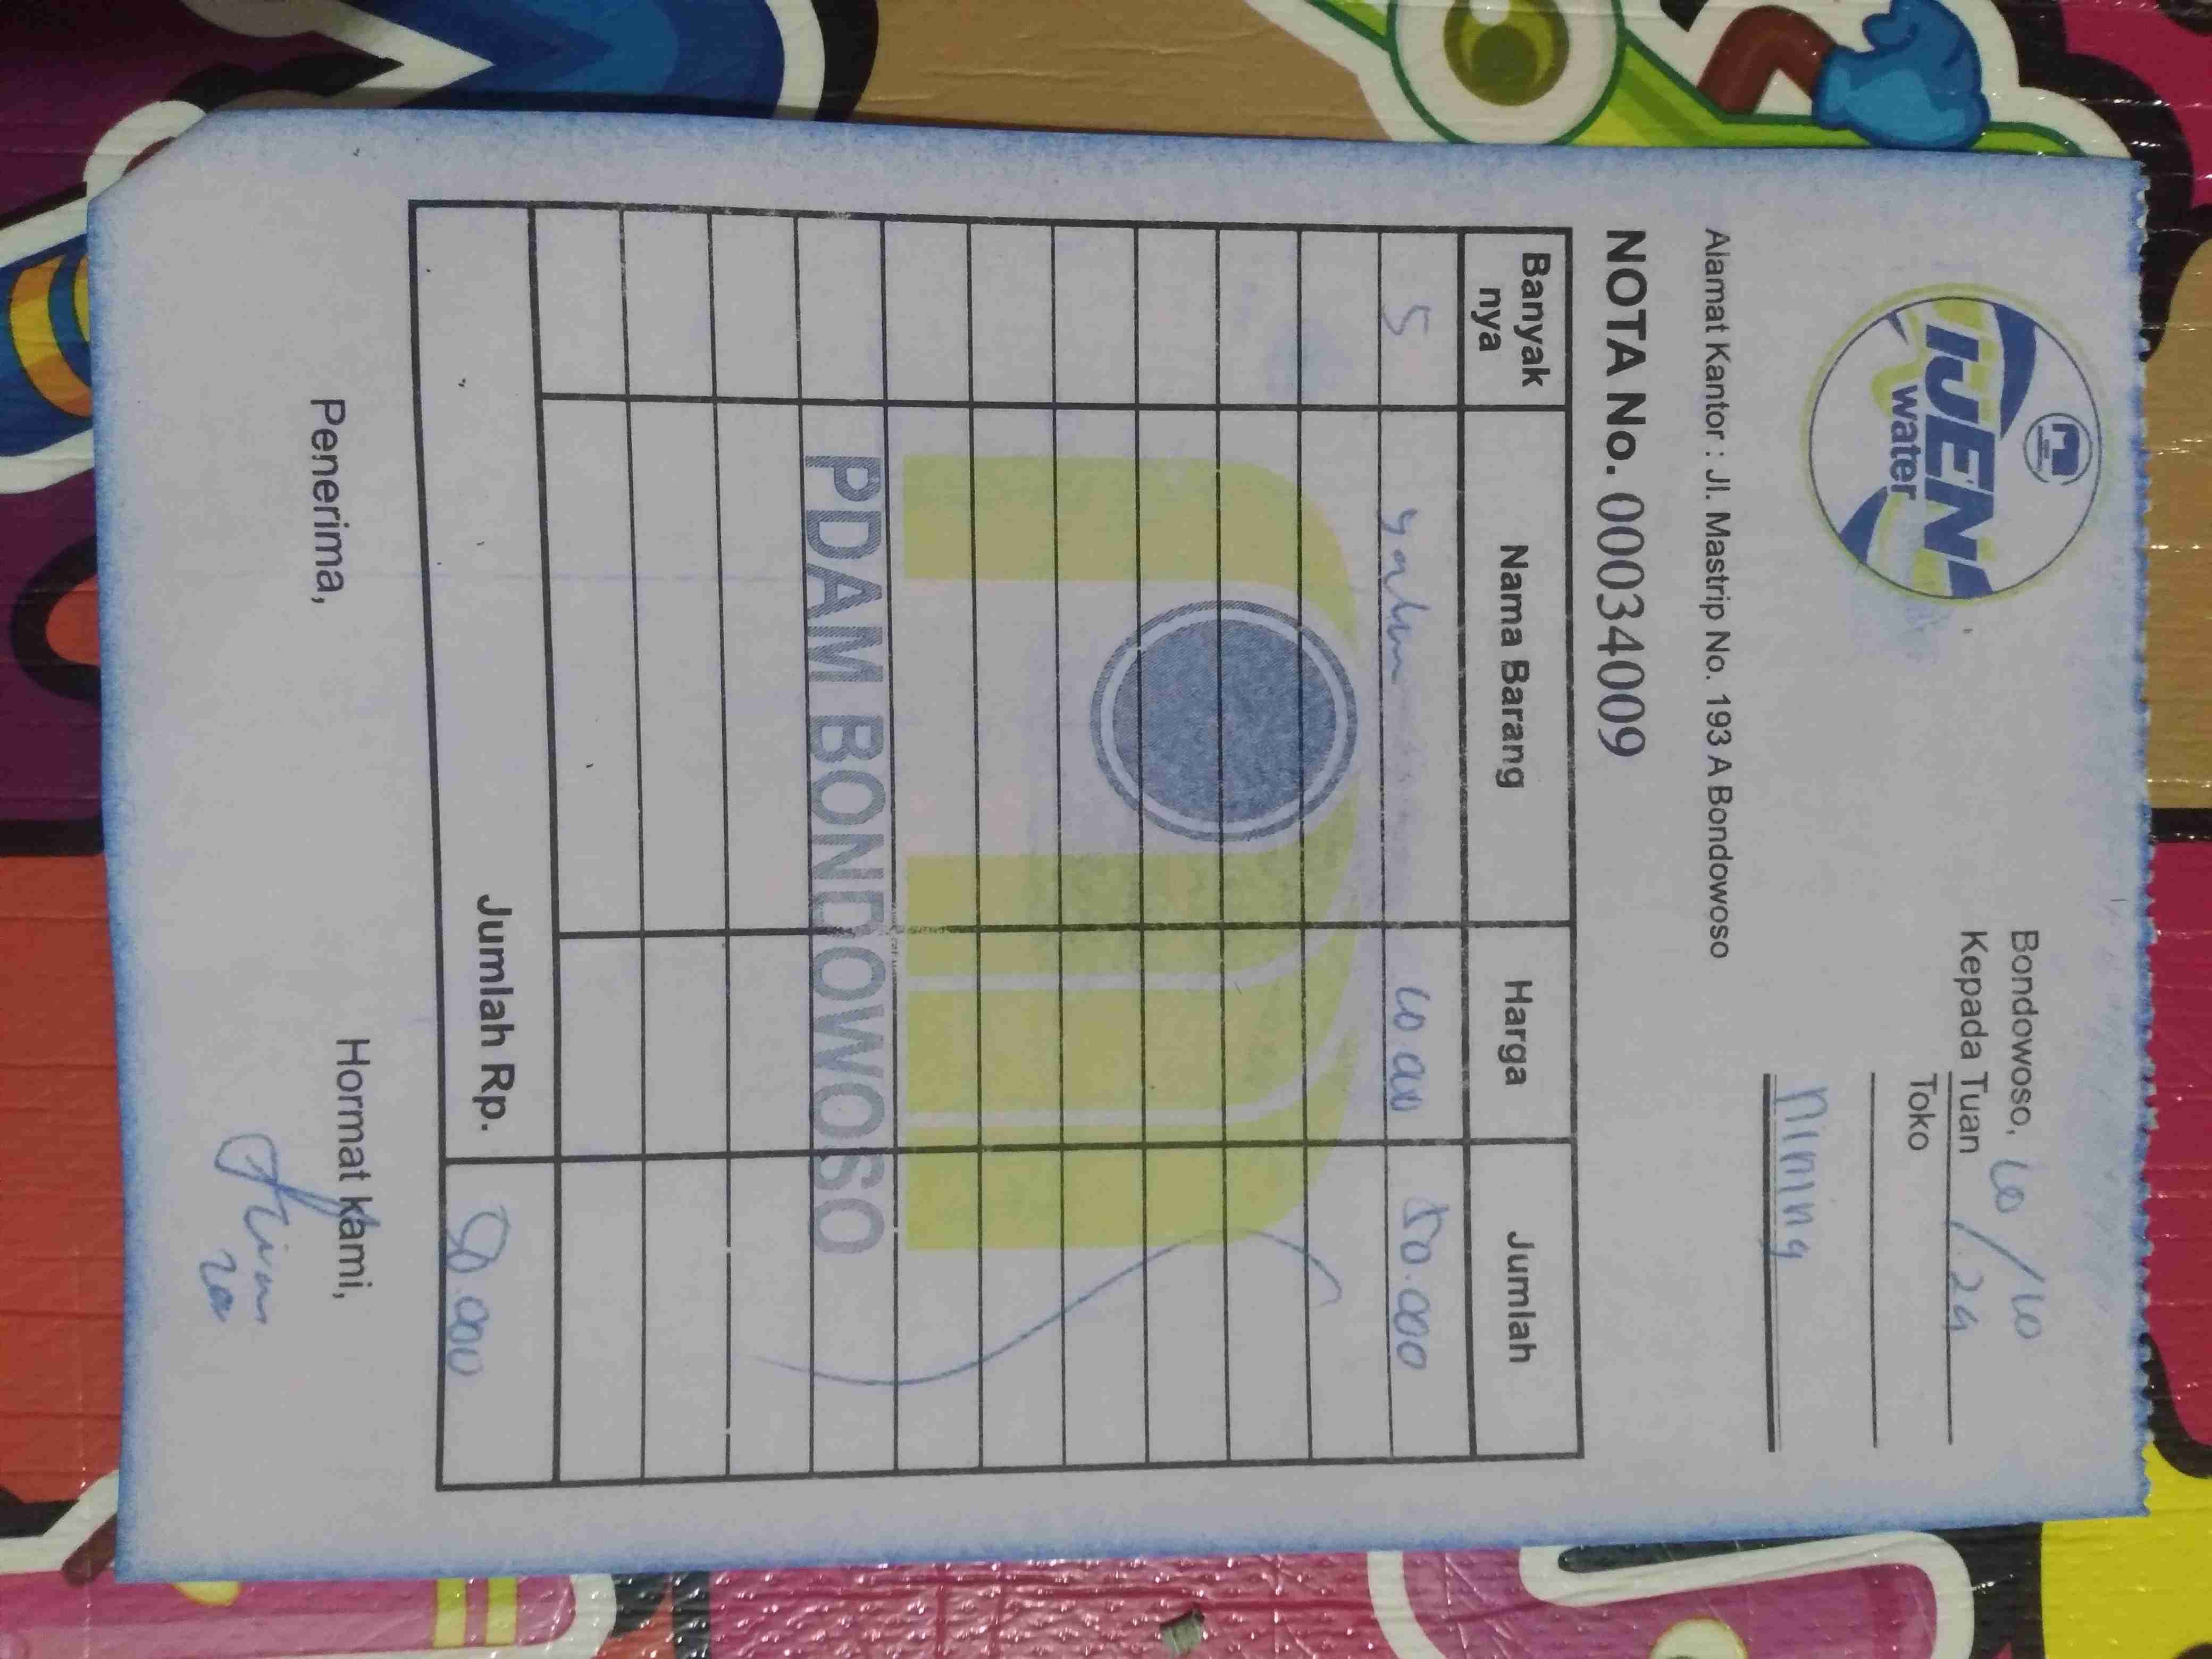 IJEN
water
Bondowoso, 10/10
Kepada Tuan 24
Toko
Nining
Alamat Kantor : Jl. Mastrip No. 193 A Bondowoso
NOTA No. 00034009
Banyak nya Nama Barang Harga Jumlah
5 galon 10.000 50.000
PDAM BONDOWOSO
Jumlah Rp. 50.000
Penerima, Hormat kami,